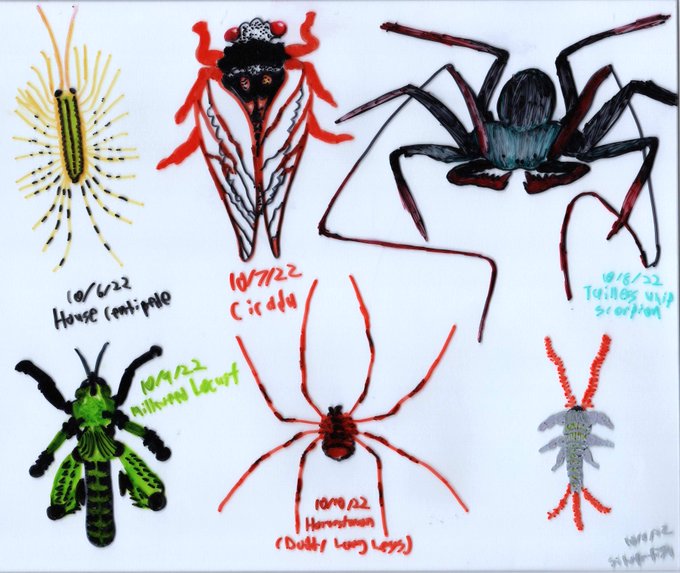 10/6/22
House Centipede
10/7/22
Cicada
10/8/22
Tailless whip
scorpion
10/9/22
Milkweed Locust
10/10/22
Harvestman
(Daddy Long Legs)